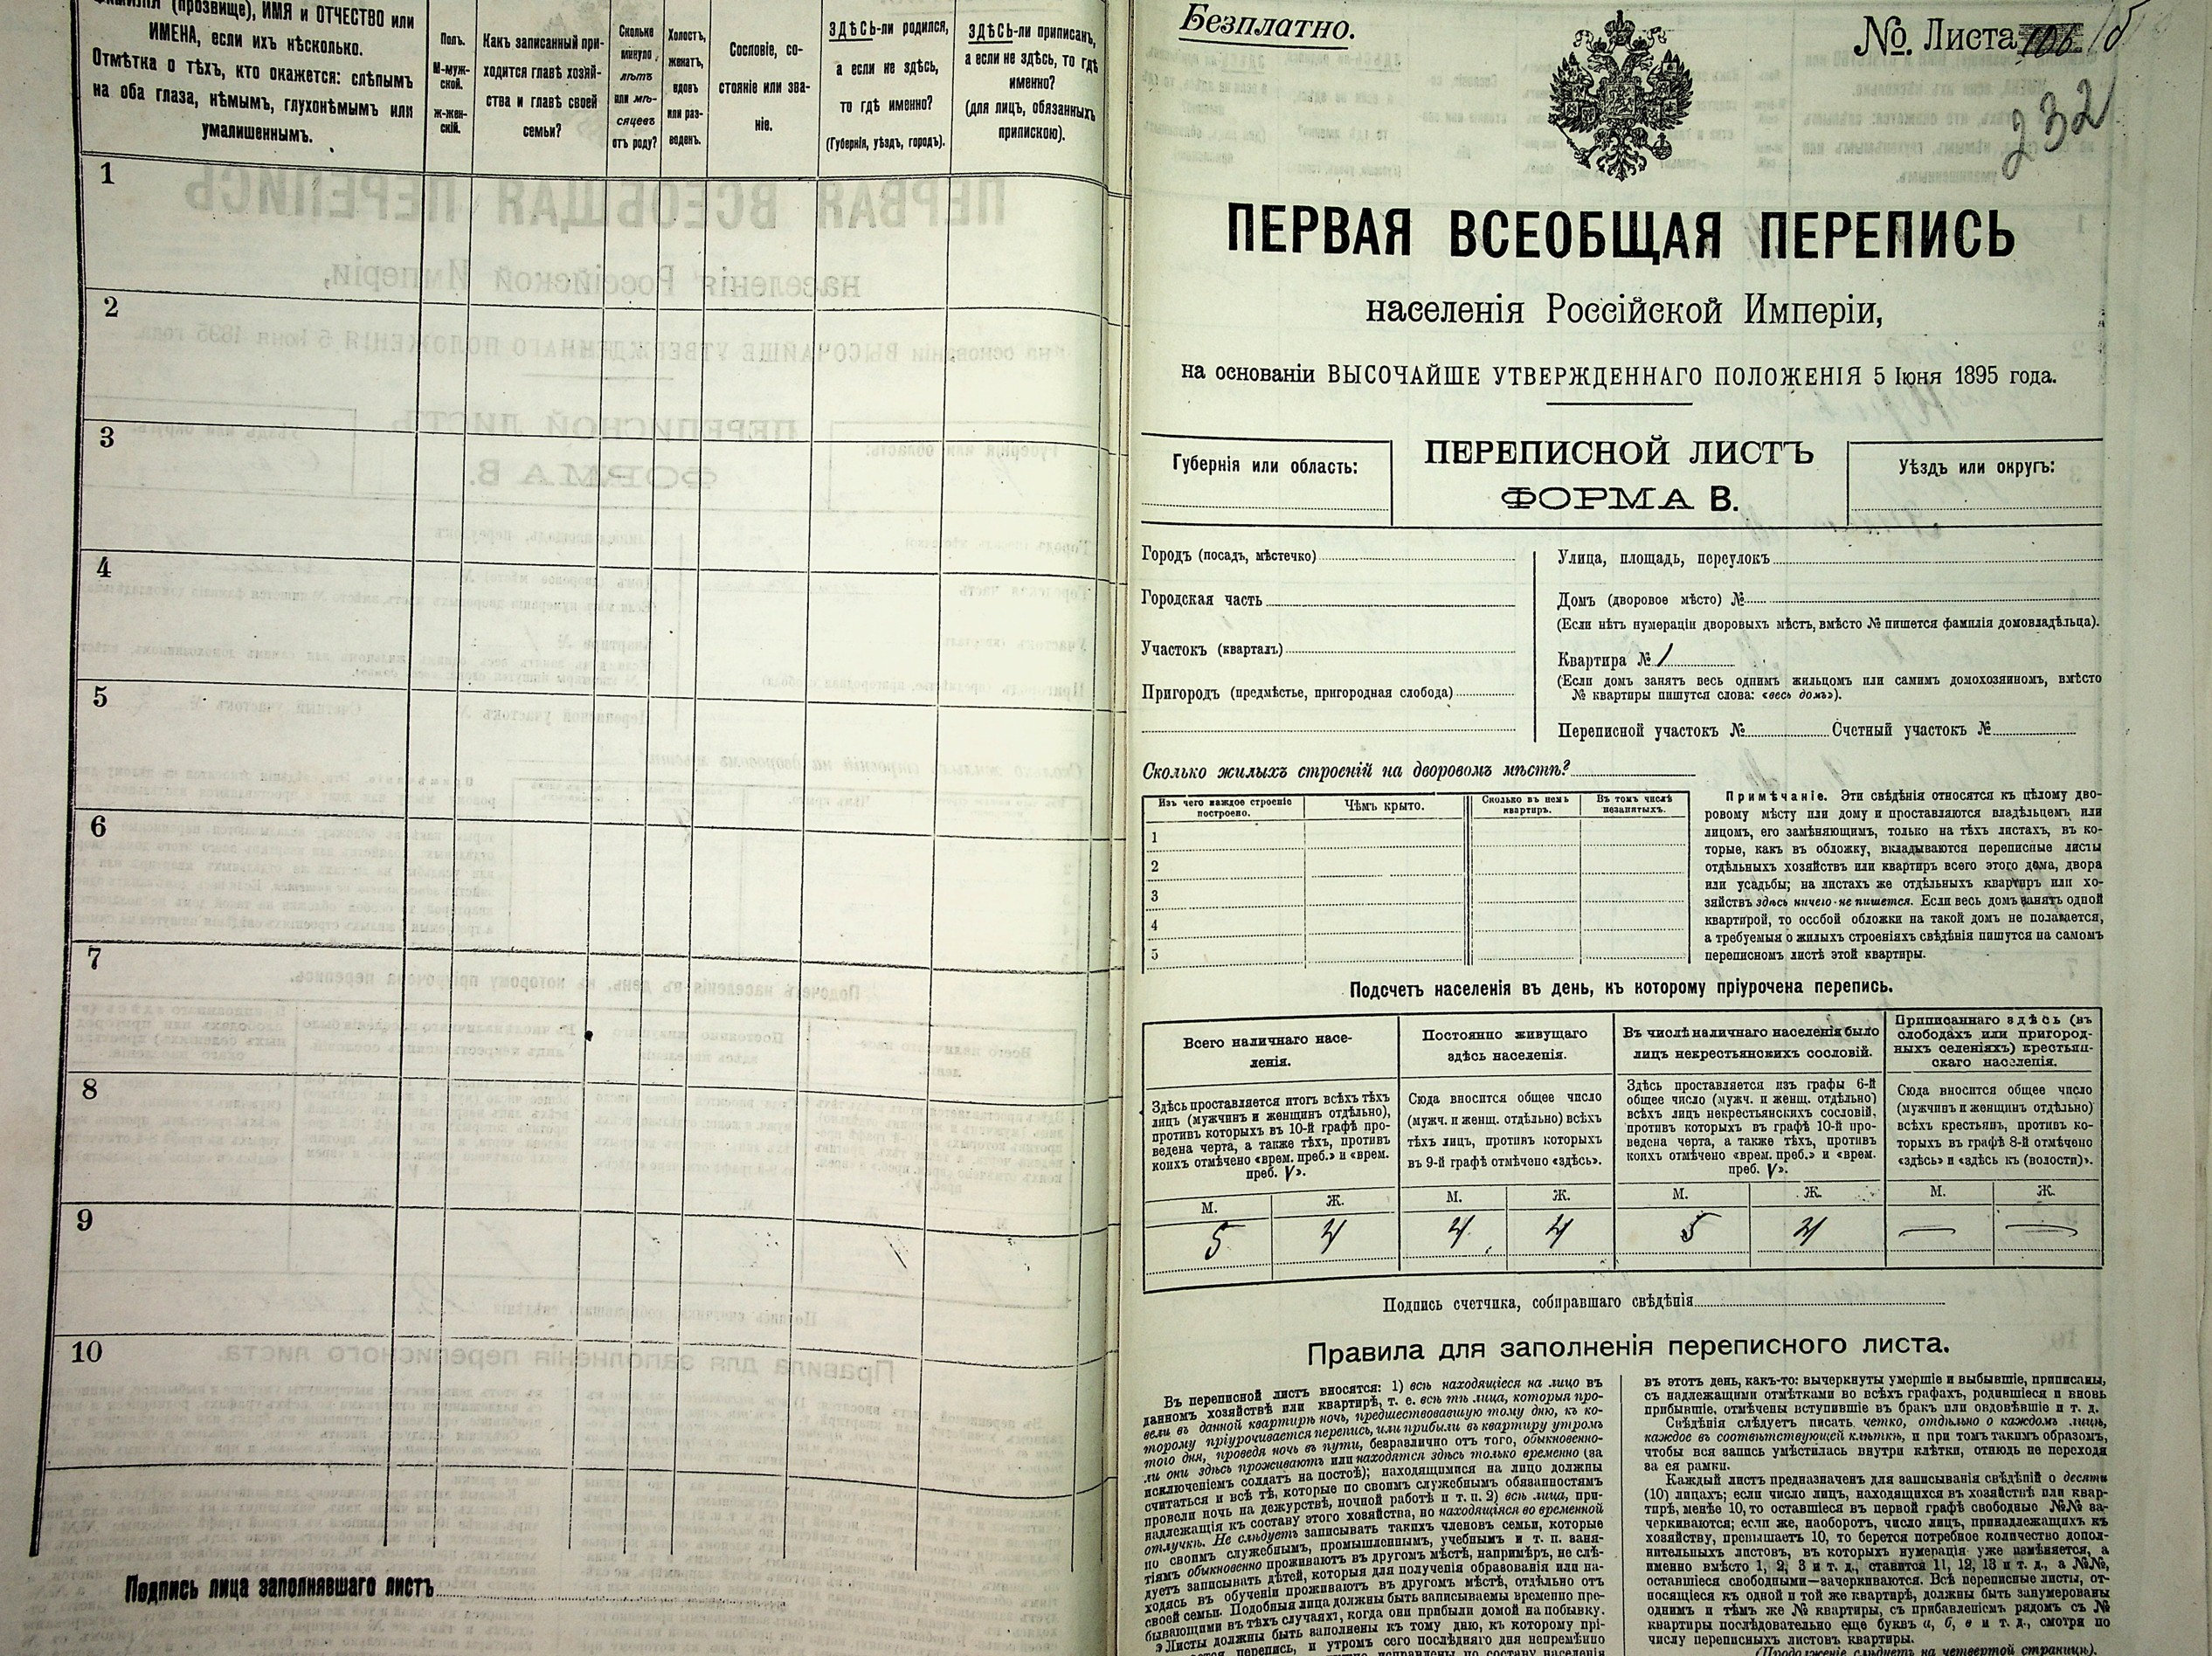 ФАМИЛІЯ (прозвище), ИМЯ и ОТЧЕСТВО или
ИМЕНА, если ихъ нѣсколько.
Отмѣтка о тѣхъ, кто окажется: слѣпымъ
на оба глаза, нѣмымъ, глухонѣмымъ или
умалишеннымъ.
Полъ.
М-муж-
ской.
Ж-жен-
скій.
Какъ записанный при-
ходится главѣ хозяй-
ства и главѣ своей
семьи?
Сколько
минуло
лѣтъ
или мѣ-
сяцевъ
отъ роду?
Холостъ,
женатъ,
вдовъ
или раз-
веденъ.
Сословіе, со-
стояніе или зва-
ніе.
ЗДѢСЬ-ли родился,
а если не здѣсь,
то гдѣ именно?
(Губернія, уѣздъ, городъ).
ЗДѢСЬ-ли приписанъ,
а если не здѣсь, то гдѣ
именно?
(для лицъ, обязанныхъ
припискою).
1
2
3
4
5
6
7
8
9
10
Подпись лица заполнявшаго листъ
Безплатно.
№ Листа
232
ПЕРВАЯ ВСЕОБЩАЯ ПЕРЕПИСЬ
населенія Россійской Имперіи,
на основаніи ВЫСОЧАЙШЕ УТВЕРЖДЕННАГО ПОЛОЖЕНІЯ 5 Іюня 1895 года.
Губернія или область:
ПЕРЕПИСНОЙ ЛИСТЪ
ФОРМА В.
Уѣздъ или округъ:
Городъ (посадъ, мѣстечко)
Городская часть
Участокъ (кварталъ)
Пригородъ (предмѣстье, пригородная слобода)
Улица, площадь, переулокъ
Домъ (дворовое мѣсто) №
(Если нѣтъ нумераціи дворовыхъ мѣстъ, вмѣсто № пишется фамилія домовладѣльца).
Квартира № 1
(Если домъ занятъ весь однимъ жильцомъ или самимъ домохозяиномъ, вмѣсто
№ квартиры пишутся слова: «весь домъ»).
Переписной участокъ № Счетный участокъ №
Сколько жилыхъ строеній на дворовомъ мѣстѣ?
Изъ чего каждое строеніе
построено.
Чѣмъ крыто.
Сколько въ немъ
квартиръ.
Въ томъ числѣ
незанятыхъ.
1
2
3
4
5
Примѣчаніе. Эти свѣдѣнія относятся къ цѣлому дво-
ровому мѣсту или дому и проставляются владѣльцемъ или
лицомъ, его замѣняющимъ, только на тѣхъ листахъ, въ ко-
торые, какъ въ обложку, вкладываются переписные листы
отдѣльныхъ хозяйствъ или квартиръ всего этого дома, двора
или усадьбы; на листахъ же отдѣльныхъ квартиръ или хо-
зяйствъ здѣсь ничего не пишется. Если весь домъ занятъ одной
квартирой, то особой обложки на такой домъ не полагается,
а требуемыя о жилыхъ строеніяхъ свѣдѣнія пишутся на самомъ
переписномъ листѣ этой квартиры.
Подсчетъ населенія въ день, къ которому пріурочена перепись.
Всего наличнаго насе-
ленія.
Здѣсь проставляется итогъ всѣхъ тѣхъ
лицъ (мужчинъ и женщинъ отдѣльно),
противъ которыхъ въ 10-й графѣ про-
ведена черта, а также тѣхъ, противъ
коихъ отмѣчено «врем. преб.» и «врем.
преб. V».
М. Ж.
5 4
Постоянно живущаго
здѣсь населенія.
Сюда вносится общее число
(мужч. и женщ. отдѣльно) всѣхъ
тѣхъ лицъ, противъ которыхъ
въ 9-й графѣ отмѣчено «здѣсь».
М. Ж.
4 4
Въ числѣ наличнаго населенія было
лицъ некрестьянскихъ сословій.
Здѣсь проставляется изъ графы 6-й
общее число (мужч. и женщ. отдѣльно)
всѣхъ лицъ некрестьянскихъ сословій,
противъ которыхъ въ графѣ 10-й про-
ведена черта, а также тѣхъ, противъ
коихъ отмѣчено «врем. преб.» и «врем.
преб. V».
М. Ж.
5 4
Приписаннаго здѣсь (въ
слободахъ или пригород-
ныхъ селеніяхъ) крестьян-
скаго населенія.
Сюда вносится общее число
(мужчинъ и женщинъ отдѣльно)
всѣхъ крестьянъ, противъ ко-
торыхъ въ графѣ 8-й отмѣчено
«здѣсь» и «здѣсь къ (волости)».
М. Ж.
— —
Подпись счетчика, собиравшаго свѣдѣнія
Правила для заполненія переписного листа.
Въ переписной листъ вносятся: 1) всѣ находящіеся на лицо въ
данномъ хозяйствѣ или квартирѣ, т. е. всѣ тѣ лица, которыя про-
вели въ данной квартирѣ ночь, предшествовавшую тому дню, къ ко-
торому пріурочивается перепись, или прибыли въ квартиру утромъ
того дня, проведя ночь въ пути, безразлично отъ того, обыкновенно-
ли они здѣсь проживаютъ или находятся здѣсь только временно (за
исключеніемъ солдатъ на постоѣ); находящимися на лицо должны
считаться и всѣ тѣ, которые по своимъ служебнымъ обязанностямъ
провели ночь на дежурствѣ, ночной работѣ и т. п. 2) всѣ лица, при-
надлежащія къ составу этого хозяйства, но находящіяся во временной
отлучкѣ. Не слѣдуетъ записывать такихъ членовъ семьи, которые
по своимъ служебнымъ, промышленнымъ, учебнымъ и т. п. заня-
тіямъ обыкновенно проживаютъ въ другомъ мѣстѣ, напримѣръ, не слѣ-
дуетъ записывать дѣтей, которыя для полученія образованія или на-
ходясь въ обученіи проживаютъ въ другомъ мѣстѣ, отдѣльно отъ
своей семьи. Подобныя лица должны быть записываемы временно пре-
бывающими въ тѣхъ случаяхъ, когда они прибыли домой на побывку.
Листы должны быть заполнены къ тому дню, къ которому прі-
перепись, и утромъ сего послѣдняго дня непремѣнно
исправлены по составу населенія
въ этотъ день, какъ-то: вычеркнуты умершіе и выбывшіе, приписаны,
съ надлежащими отмѣтками во всѣхъ графахъ, родившіеся и вновь
прибывшіе, отмѣчены вступившіе въ бракъ или овдовѣвшіе и т. д.
Свѣдѣнія слѣдуетъ писать четко, отдѣльно о каждомъ лицѣ,
каждое въ соотвѣтствующей клѣткѣ, и при томъ такимъ образомъ,
чтобы вся запись умѣстилась внутри клѣтки, отнюдь не переходя
за ея рамки.
Каждый листъ предназначенъ для записыванія свѣдѣній о десяти
(10) лицахъ; если число лицъ, находящихся въ хозяйствѣ или квар-
тирѣ, менѣе 10, то оставшіеся въ первой графѣ свободные №№ за-
черкиваются; если же, наоборотъ, число лицъ, принадлежащихъ къ
хозяйству, превышаетъ 10, то берется потребное количество допол-
нительныхъ листовъ, въ которыхъ нумерація уже измѣняется, а
именно вмѣсто 1, 2, 3 и т. д., ставится 11, 12, 13 и т. д., а №№,
оставшіеся свободными—зачеркиваются. Всѣ переписные листы, от-
носящіеся къ одной и той же квартирѣ, должны быть занумерованы
однимъ и тѣмъ же № квартиры, съ прибавленіемъ рядомъ съ №
квартиры послѣдовательно еще буквъ а, б, в и т. д., смотря по
числу переписныхъ листовъ квартиры.
(Продолженіе слѣдуетъ на четвертой страницѣ).